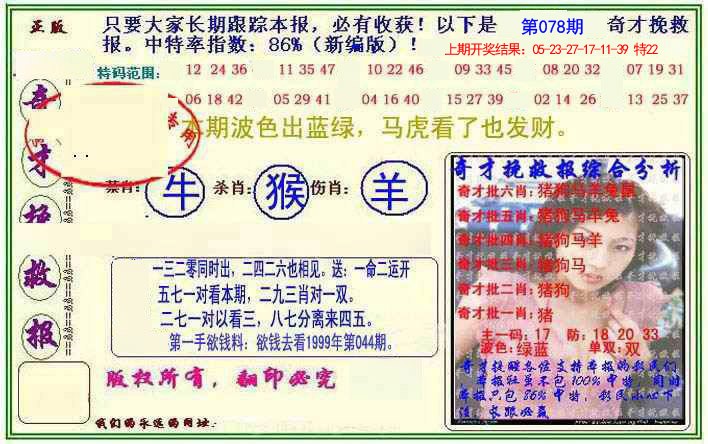 正版
只要大家长期跟踪本报，必有收获！以下是 第078期 奇才挽救
报。中特率指数：86%（新编版）！
上期开奖结果：05-23-27-17-11-39 特22
特码范围：
12 24 36 11 35 47 10 22 46 09 33 45 08 20 32 07 19 31
06 18 42 05 29 41 04 16 40 15 27 39 02 14 26 13 25 37
本期波色出蓝绿，马虎看了也发财。
奇
才
挽
救
报
禁肖：牛 杀肖：猴 伤肖：羊
一三二零同时出，二四二六也相见。送：一命二运开
五七一对看本期，二九三肖对一双。
二七一对以看三，八七分离来四五。
第一手欲钱料：欲钱去看1999年第044期。
版权所有，翻印必究
我们的永远的网址：
奇才挽救报综合分析
奇才批六肖：猪狗马羊兔鼠
奇才批五肖：猪狗马羊兔
奇才批四肖：猪狗马羊
奇才批三肖：猪狗马
奇才批二肖：猪狗
奇才批一肖：猪
主一码：17 防：18 20 33
波色：绿蓝 单双：双
奇才挽救各位支持本报的彩民们
本报担虽不包100%中特，同时
本报只包86%中特，彩民小心下
注，长跟必赢